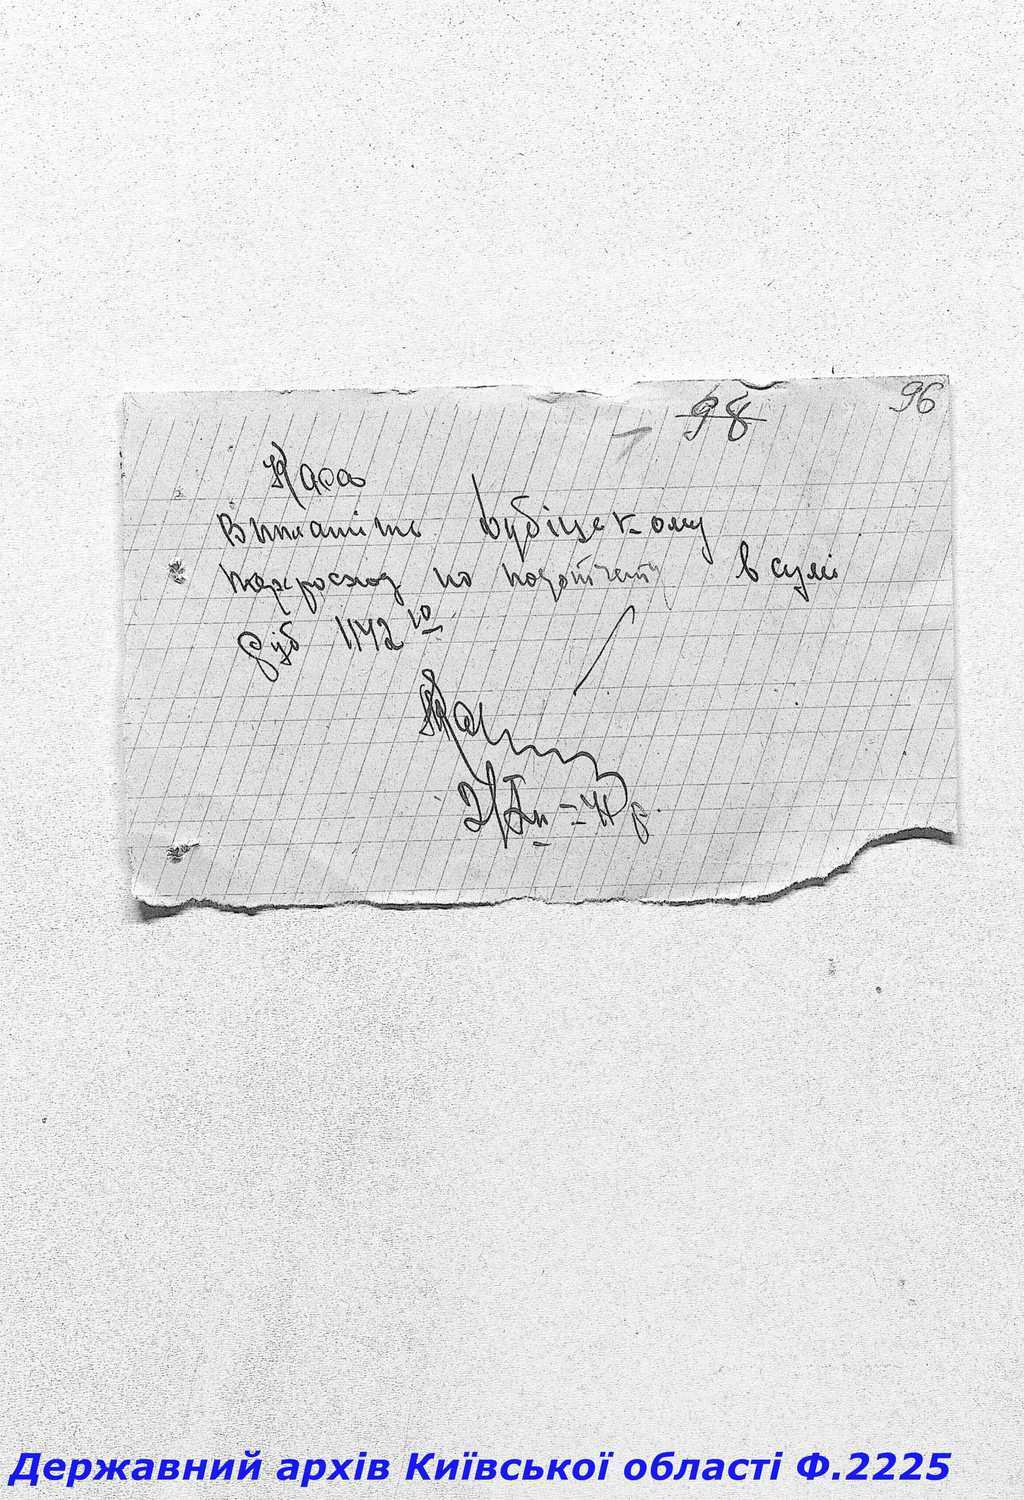 98
96
Каса
Виплатіть Дубіцькому
перросход по подотчету в сумі
руб 1142 10
2/XII – 41 р.
Державний архів Київської області Ф.2225